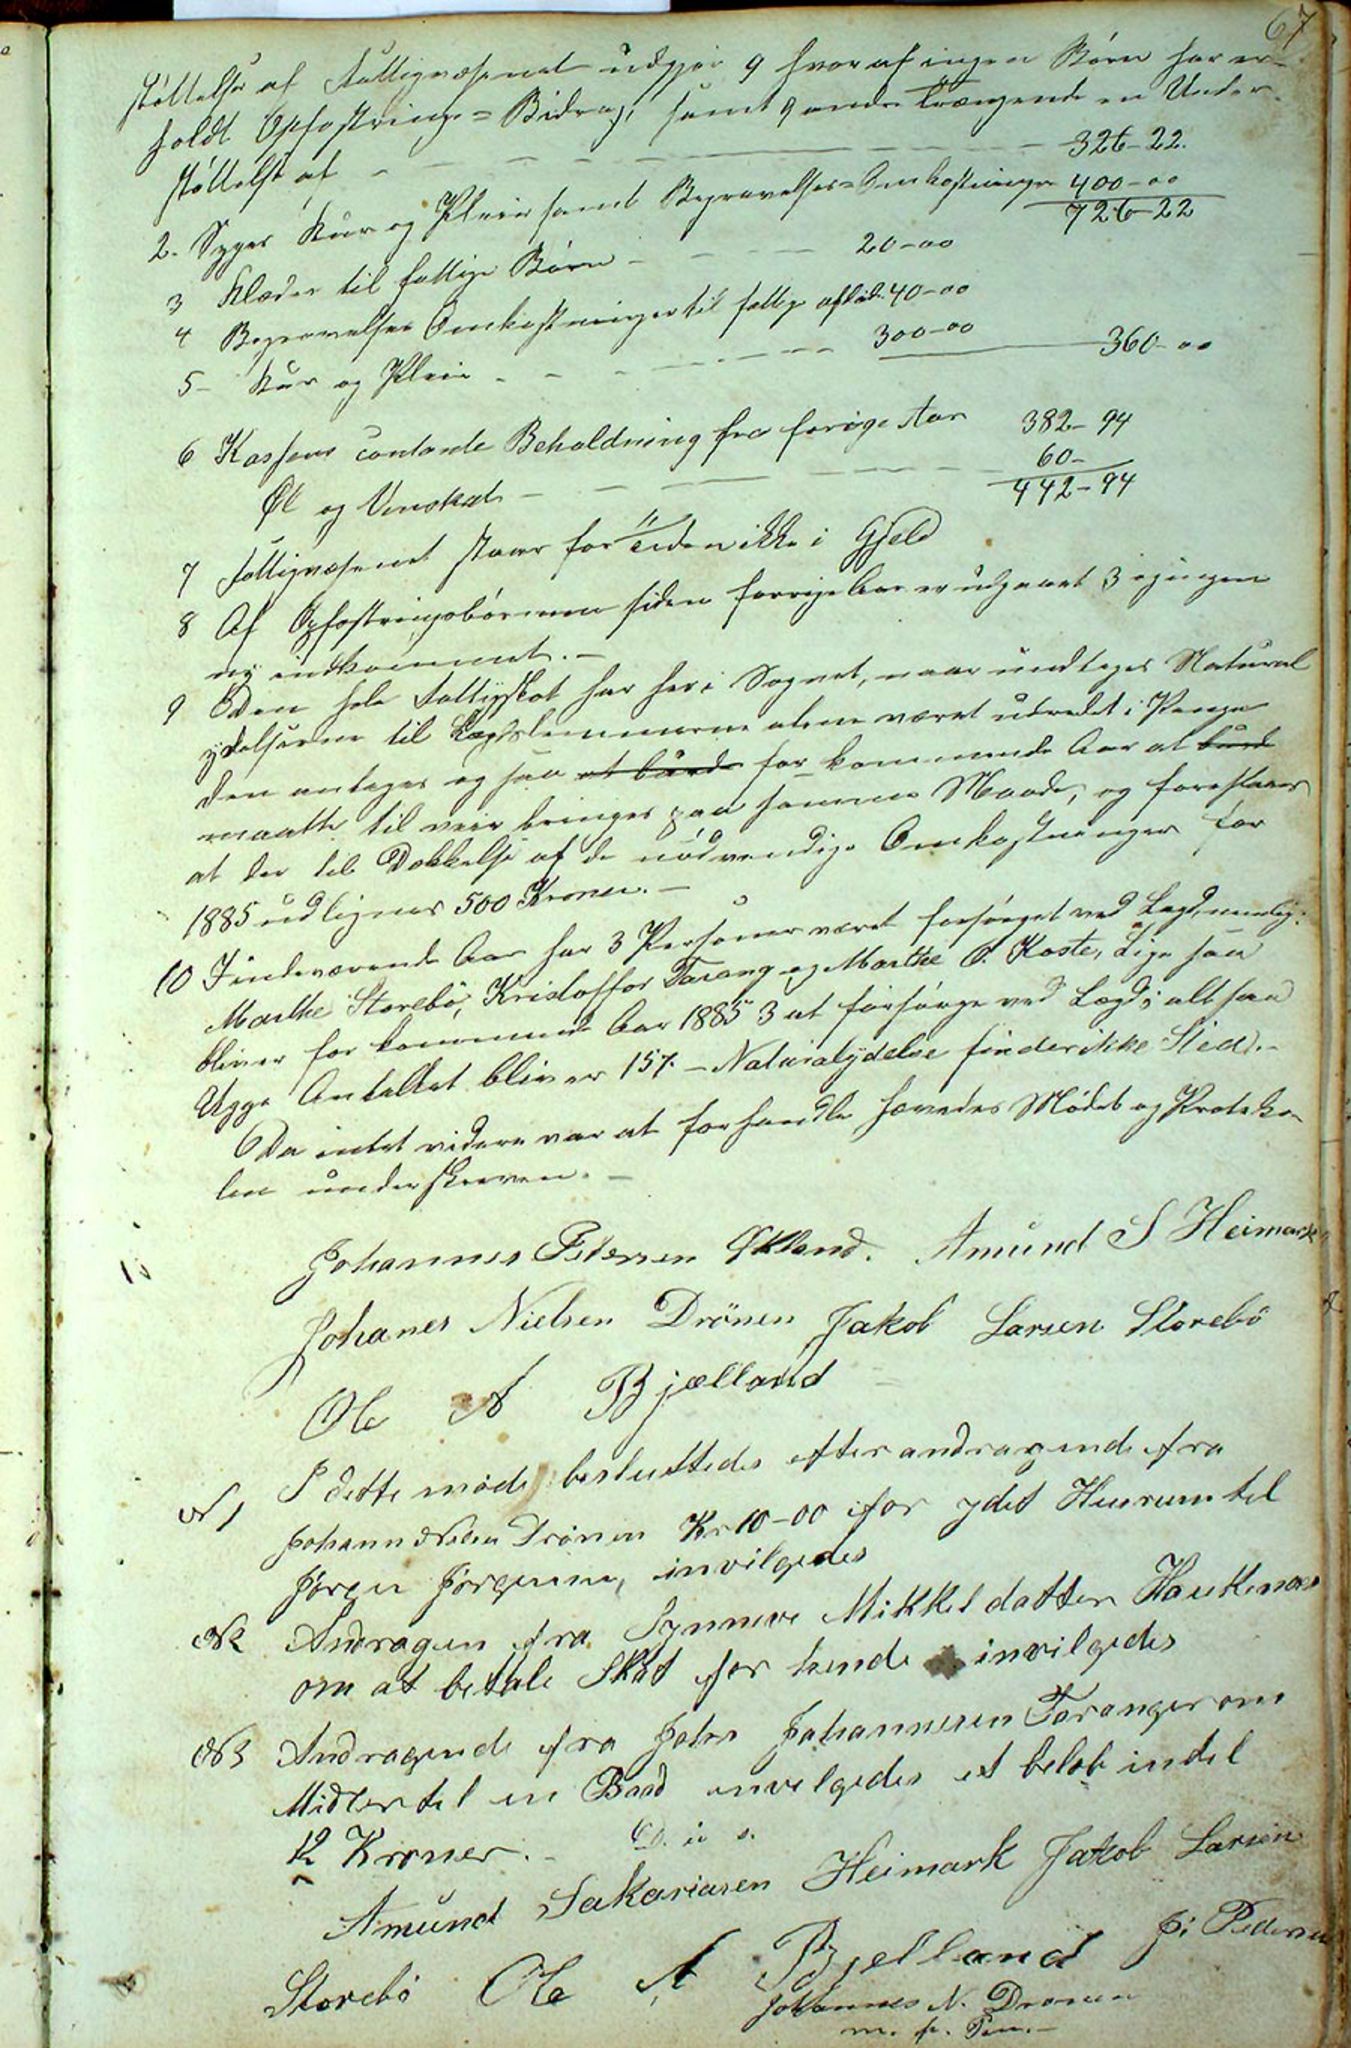 67
støttelse af Fattigvæsenet udgjør 9 hvoraf ingen Børn har er-
holdt Opfostrings=Bidrag, samt 9 andre Trængende en Under-
støttelse af - - - - 326-22.
2. Syges Kur og Pleie samt Begravelses=Omkostninger 400-00
726-22
3 Klæder til fattige Børn - - - 20-00
4 Begravelses Omkostninger til fattige afdøde 40-00
5- Kur og Pleie - - - - 300-00 360-00
6 Kassens contante Beholdning fra forrige Aar 382-94
Øl og Vinskat - - - - 60-
442-94
7 Fattigvæsenet staar for Tiden ikke i Gjeld
8 Af Opfostringsbørnene siden forrige Aar er udgaaet 3 og ingen
ny indkommet. -
9 Den hele Fattigskat har her i Sognet, naar undtages Natural
ydelserne til Lægdslemmerne alene været udredet i Penge
den antages og saa at burde for kommende Aar at burde
maatte til veie bringes paa samme Maade, og foreslaaes
at der til Dækkelse af de nødvendige Omkostninger for
1885 udlignes 500 Kroner. -
10 I indeværende Aar har 3 Personer været forsørget ved Lægd, nemlig:
Marthe Storebø, Kristoffer Farang og Marthe O. Koste, Lige saa
bliver for kommende Aar 1885 3 at forsørge ved Lægd; alt saa
Antallet bliver 157. - Naturalydelse finder ikke Sted. -
Da intet videre var at forhandle hævedes Mødet og Protoko-
len underskreven. -
Johannes Petersen Økland. Amund S Heimark
Johanes Nielsen Drönen Jakob Larsen Storebö
Ole A Bjælland
N 1 I dette möde besluttedes efter andragende fra
Johann Nielsen Drönen Kr 10-00 for ydet Huusrum til
Jörgen Jörgensen, invilgedes
N2 Andragen fra Synneve Mikkeldatter Haukenæs
om at betale Skat for hende invilgedes
N3 Andragende fra John Johannesen Faranger om
Midler til en Baad invilgedes et belöb indtil
12 Kroner. - D. u. s.
Amund Sakariasen Heimark Jakob Larsen
Storebö Ole A Bjelland J. Pedersen
Johannes N. Dronen
m. p. Pen. -